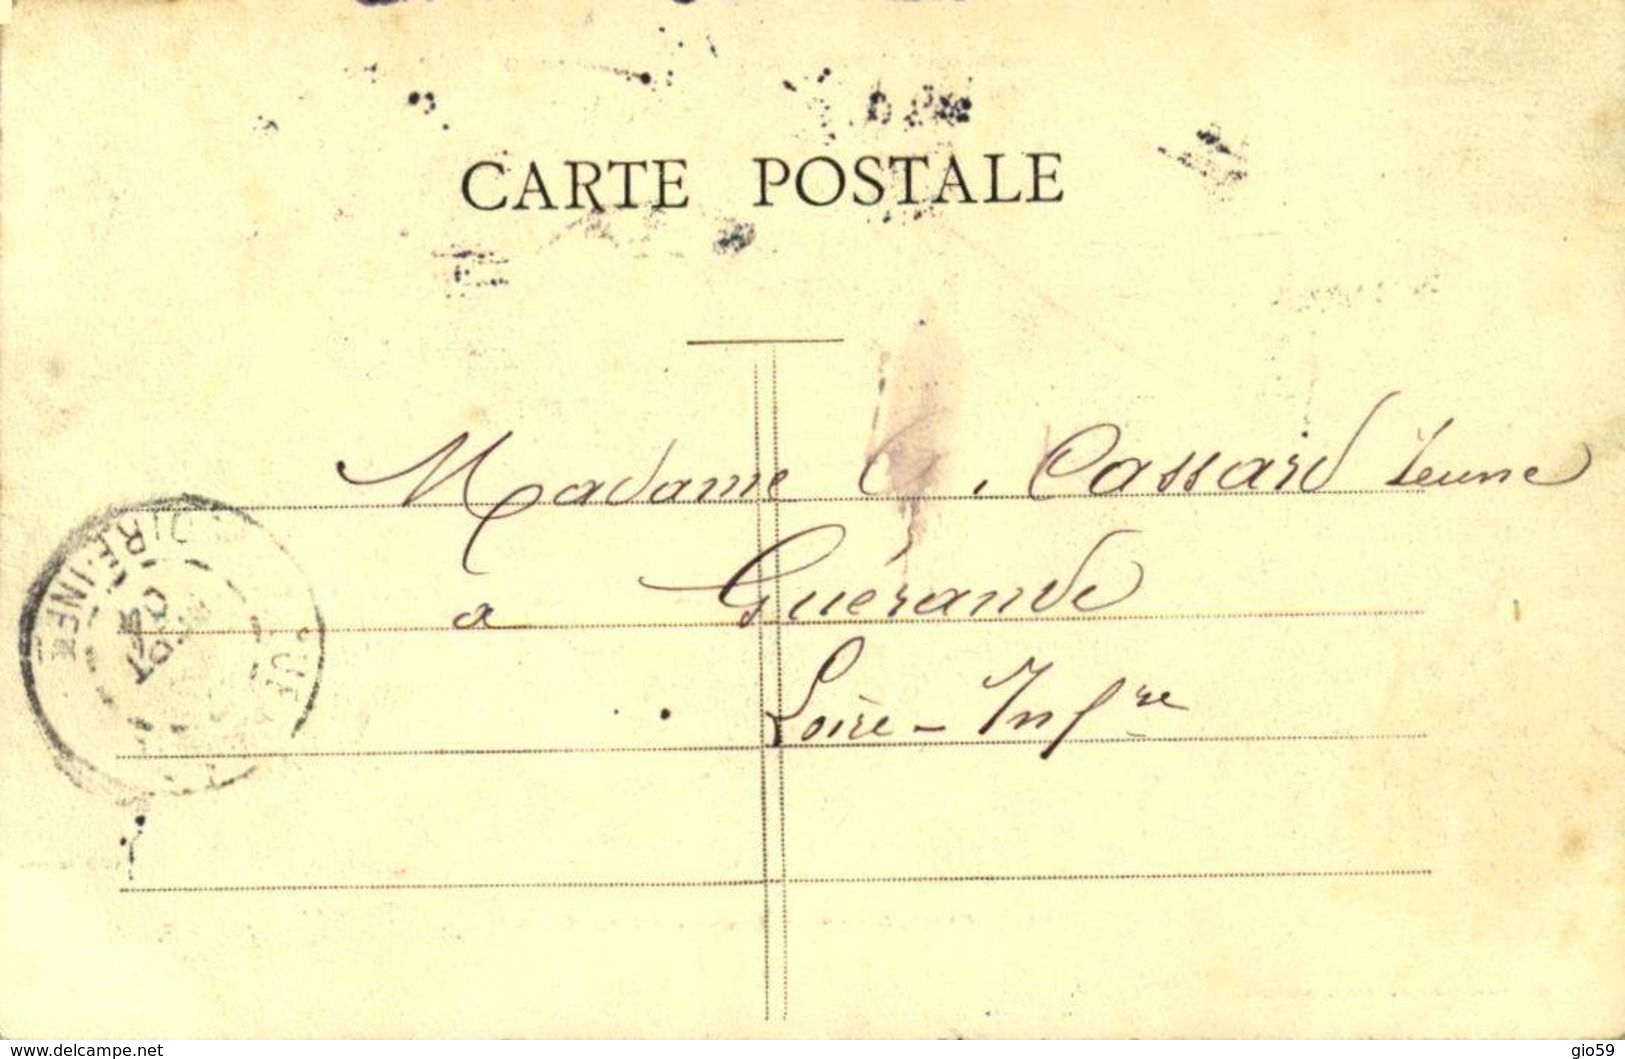 CARTE POSTALE
Madame G. Cassard Jeune
à Guérande
Loire-Infre
OIRE-INFRE
www.delcampe.net
gio59